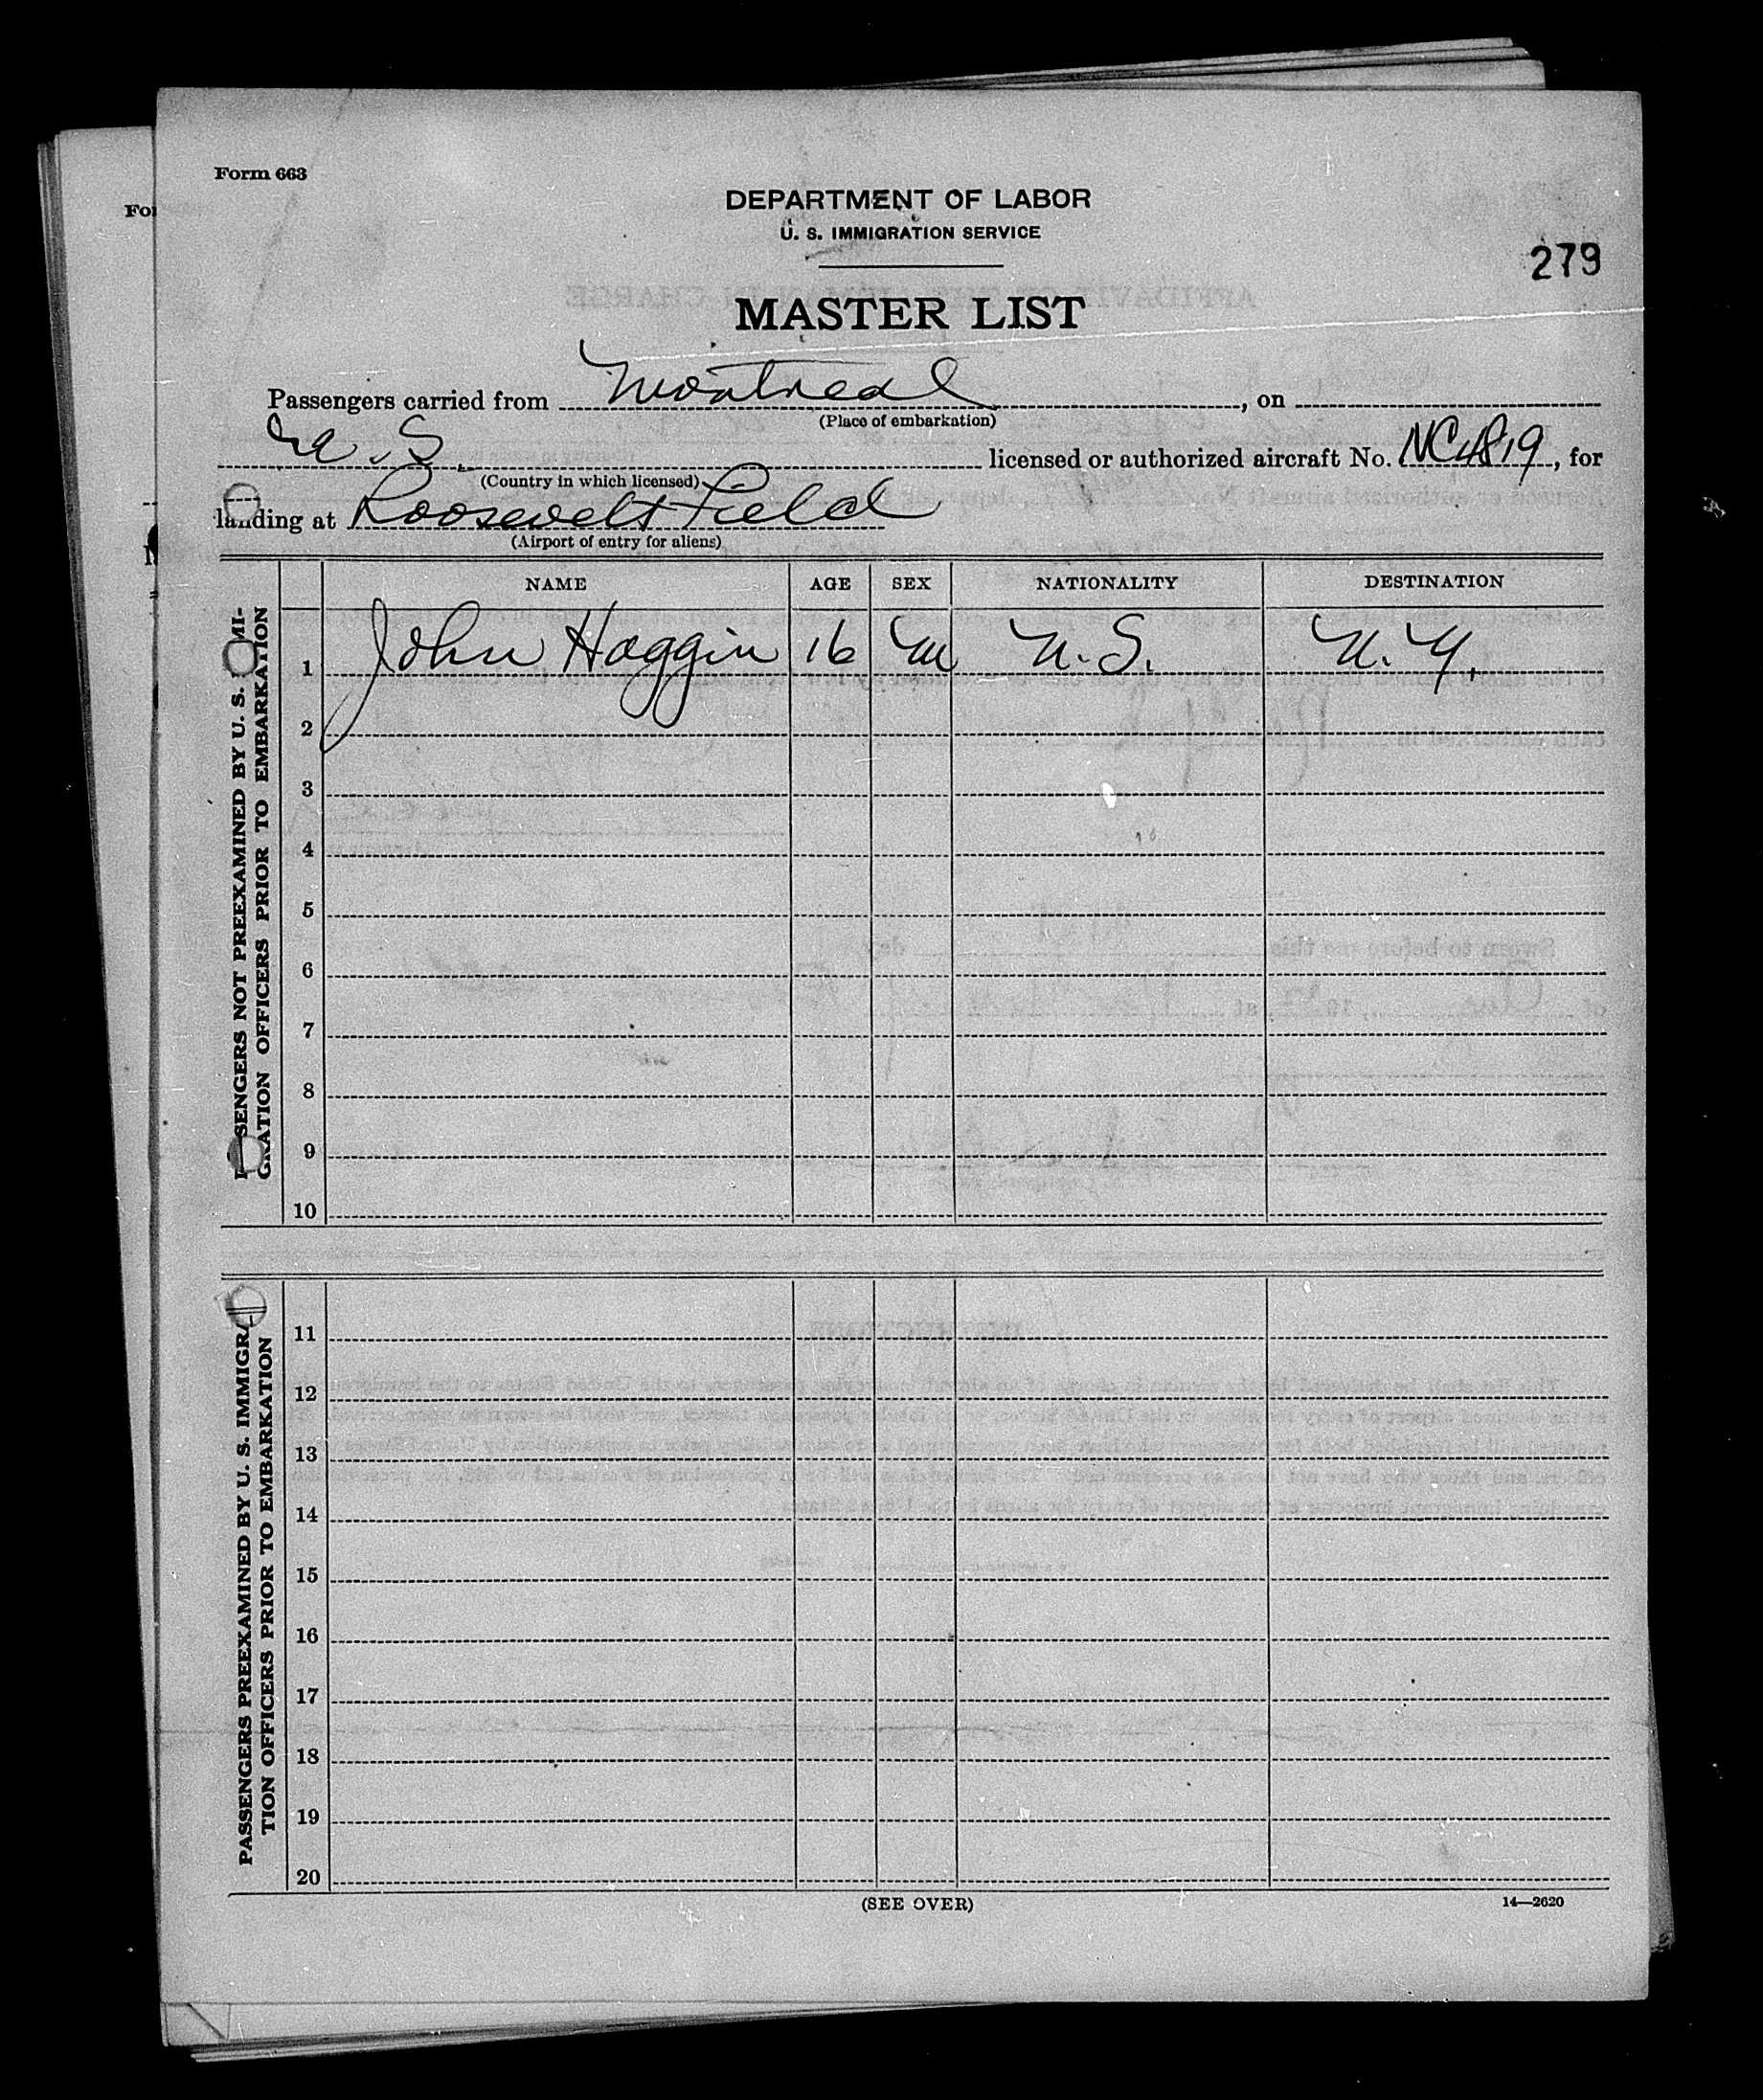 Form 663
DEPARTMENT OF LABOR
U. S. IMMIGRATION SERVICE
279
MASTER LIST
Passengers carried from Montreal, on
(Place of embarkation)
U.S. licensed or authorized aircraft No. NC4819, for
(Country in which licensed)
landing at Roosevelt Field
(Airport of entry for aliens)
NAME AGE SEX NATIONALITY DESTINATION
PASSENGERS NOT PREEXAMINED BY U. S. IMMI-
GRATION OFFICERS PRIOR TO EMBARKATION
1 John Haggin 16 M U.S. N.Y.
2
3
4
5
6
7
8
9
10
PASSENGERS PREEXAMINED BY U. S. IMMIGRA-
TION OFFICERS PRIOR TO EMBARKATION
11
12
13
14
15
16
17
18
19
20
(SEE OVER)
14—2620